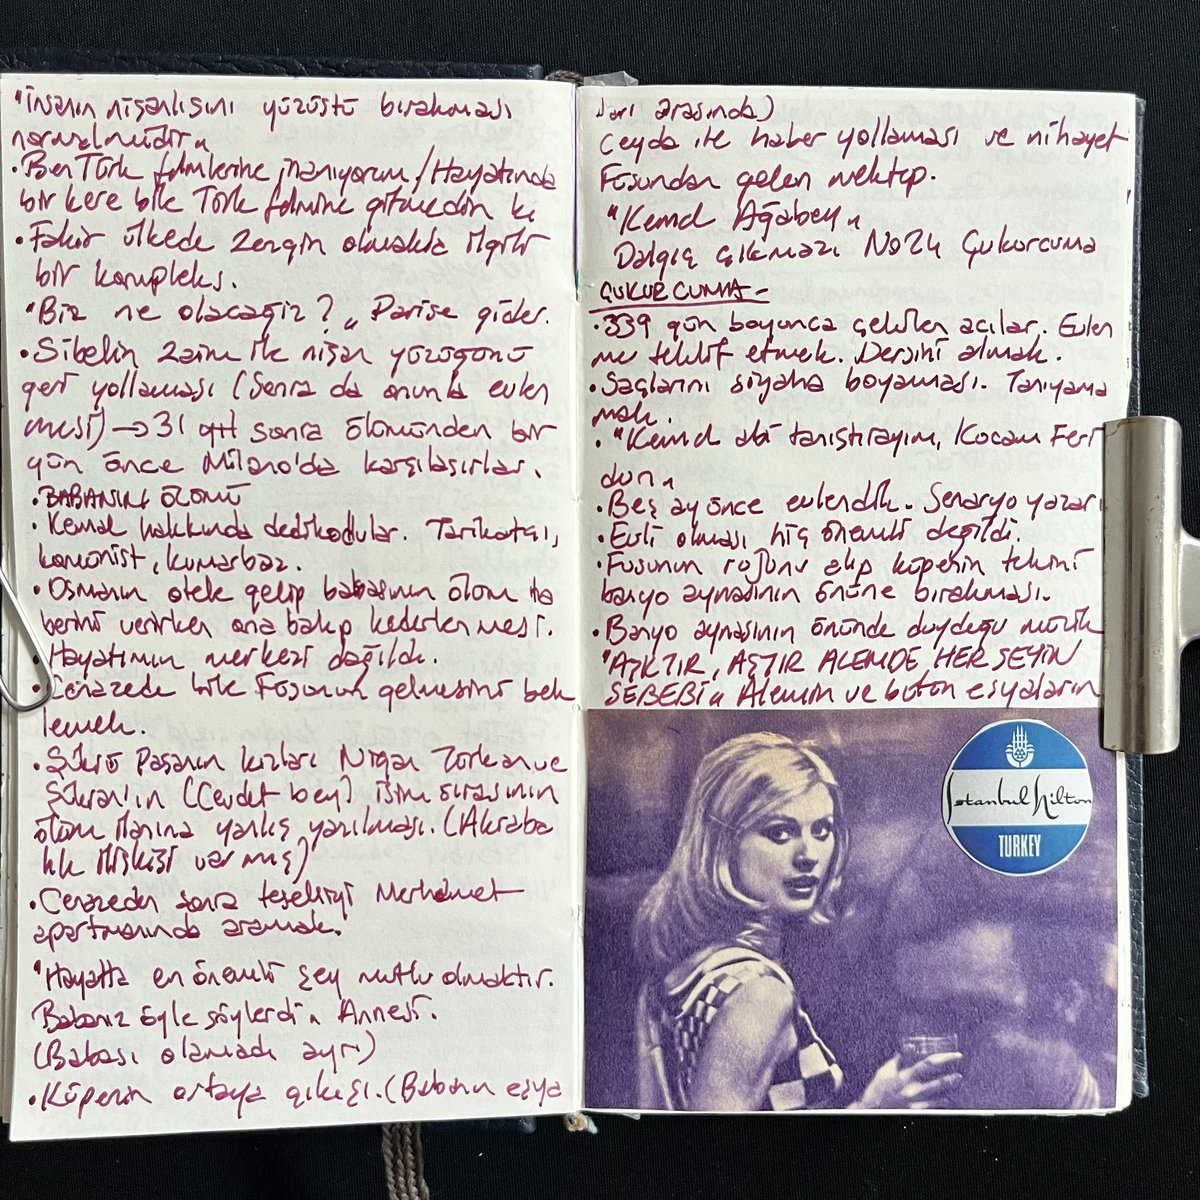 "İnsanın nişanlısını yüzüstü bırakması
normal midir"
• Ben Türk filmlerine inanıyorum / Hayatında
bir kere bile Türk filmine gitmedin ki
• Fakir ülkede zengin olmakla ilgili
bir kompleks.
"Biz ne olacağız?" Parise gider.
• Sibelin Zaim ile nişan yüzüğünü
geri yollaması (Sonra da onunla evlen
mesi) → 31 yıl sonra ölümünden bir
gün önce Milano'da karşılaşırlar.
• BABASININ ÖLÜMÜ
• Kemal hakkında dedikodular. Tarikatçı,
komünist, kumarbaz.
• Osmanın otele gelip babasının ölüm ha
berini verirken ona bakıp kederlenmesi.
• Hayatımın merkezi dağıldı.
• Cenazede bile Füsunun gelmesini bek
lemek.
• Şükrü Paşanın kızları Nigan Türkan ve
Şükran'ın (Cevdet bey) isim sırasının
ölüm ilanına yanlış yazılması. (Akraba
lık ilişkisi varmış)
• Cenazeden sonra teselliyi Merhamet
apartmanında aramak.
"Hayatta en önemli şey mutlu olmaktır.
Babanız öyle söylerdi" Annesi.
(Babası olamadı ayrı)
• Küpenin ortaya çıkışı. (Babanın eşya
ları arasında)
Ceyda ile haber yollaması ve nihayet
Füsundan gelen mektup.
"Kemal Ağabey"
Dalgıç çıkmazı No 24 Çukurcuma
ÇUKURCUMA -
• 339 gün boyunca çekilen acılar. Evlen
me teklif etmek. Dersini almak.
• Saçlarını siyaha boyaması. Tanıyama
mak.
• "Kemal abi tanıştırayım, Kocam Feri
dun"
• Beş ay önce evlendik. Senaryo yazarı
• Evli olması hiç önemli değildi.
• Füsunun rujunu alıp küpenin tekini
banyo aynasının önüne bırakması.
• Banyo aynasının önünde duyduğu mutluluk
"AŞKTIR, AŞTIR ALEMDE HER ŞEYİN
SEBEBİ" Alemin ve bütün eşyaların
Istanbul Hilton
TURKEY